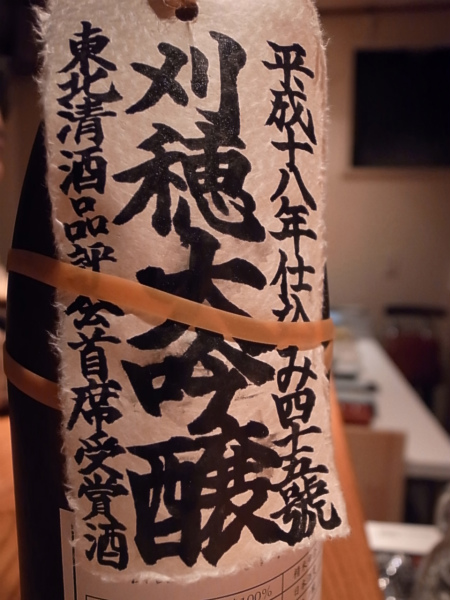 平成十八年仕込み四十五號
刈穂大吟醸
東北清酒品評会首席受賞酒
100%